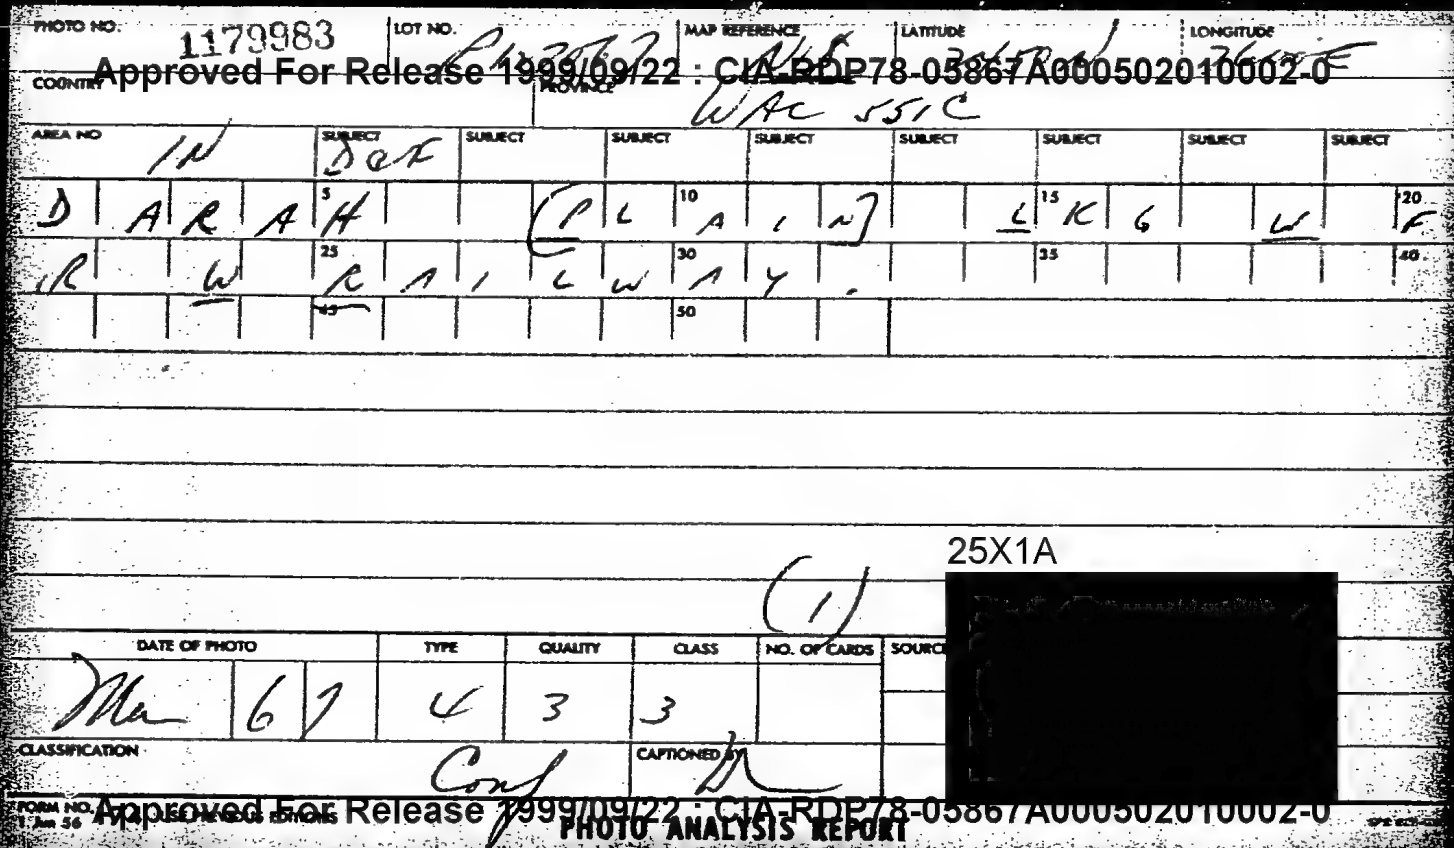 PHOTO NO. 1179983 LOT NO. MAP REFERENCE LATITUDE LONGITUDE
Approved For Release 1999/09/22 : CIA-RDP78-05867A000502010002-0
COUNTRY PROVINCE
WAC 551C
AREA NO IN SUBJECT SUBJECT SUBJECT SUBJECT SUBJECT SUBJECT SUBJECT SUBJECT
D A R A 5 H ( P L 10 A I N ) L 15 K G W 20 F
R W 25 R A I L W 30 A Y . 35 40
45 50
25X1A
(1)
DATE OF PHOTO TYPE QUALITY CLASS NO. OF CARDS SOURCE
67 4 3 3
CLASSIFICATION Conf CAPTIONED BY
FORM NO. USE PREVIOUS EDITIONS
1 Jun 56
Approved For Release 1999/09/22 : CIA-RDP78-05867A000502010002-0
PHOTO ANALYSIS REPORT